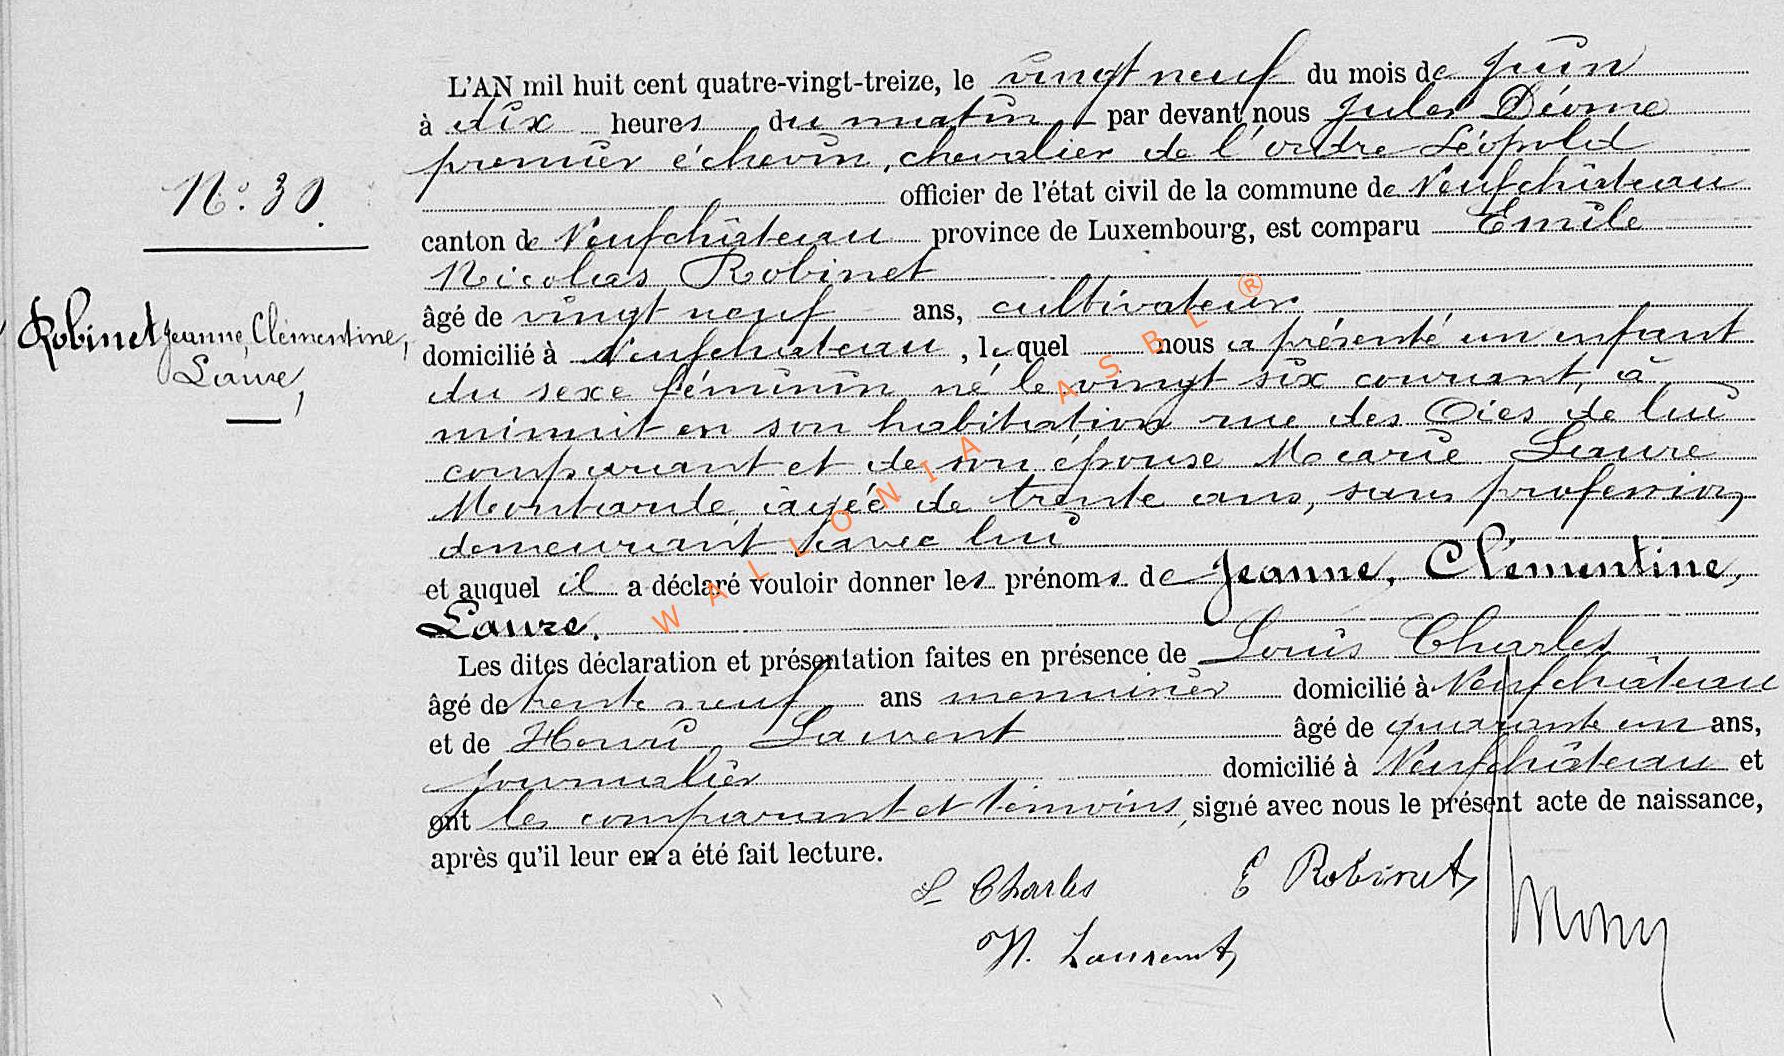 L'AN mil huit cent quatre-vingt-treize, le vingt neuf du mois de Juin
à dix heures du matin par devant nous Jules Déome
premier échevin, chevalier de l'ordre Léopold
N° 30.
officier de l'état civil de la commune de Neufchâteau
canton de Neufchâteau province de Luxembourg, est comparu Emile
Nicolas Robinet
âgé de vingt neuf ans, cultivateur
Robinet Jeanne, Clémentine,
Laure,
domicilié à Neufchateau, lequel nous a présenté un enfant
du sexe féminin né le vingt six courant, à
minuit en son habitation rue des Oies de lui
comparant et de son épouse Marie Laure
âgée de trente ans, sans profession,
demeurant avec lui
et auquel il a déclaré vouloir donner les prénoms de Jeanne, Clémentine,
Laure.
Les dites déclaration et présentation faites en présence de Louis Charles
âgé de trente neuf ans menuisier domicilié à Neufchâteau
et de Henri Laurent âgé de quarante un ans,
journalier domicilié à Neufchâteau et
ont les comparant et témoins, signé avec nous le présent acte de naissance,
après qu'il leur en a été fait lecture.
L Charles E Robinet
H. Laurent
WALLONIA ASBL ®